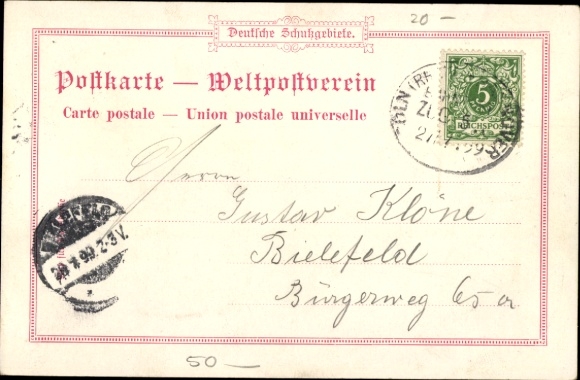 20 —
Deutsche Schutzgebiete.
Postkarte — Weltpostverein
Carte postale — Union postale universelle
5
REICHSPOST
ZUG
Herrn
Gustav Klöne
Bielefeld
Bürgerweg 65 a
50 —